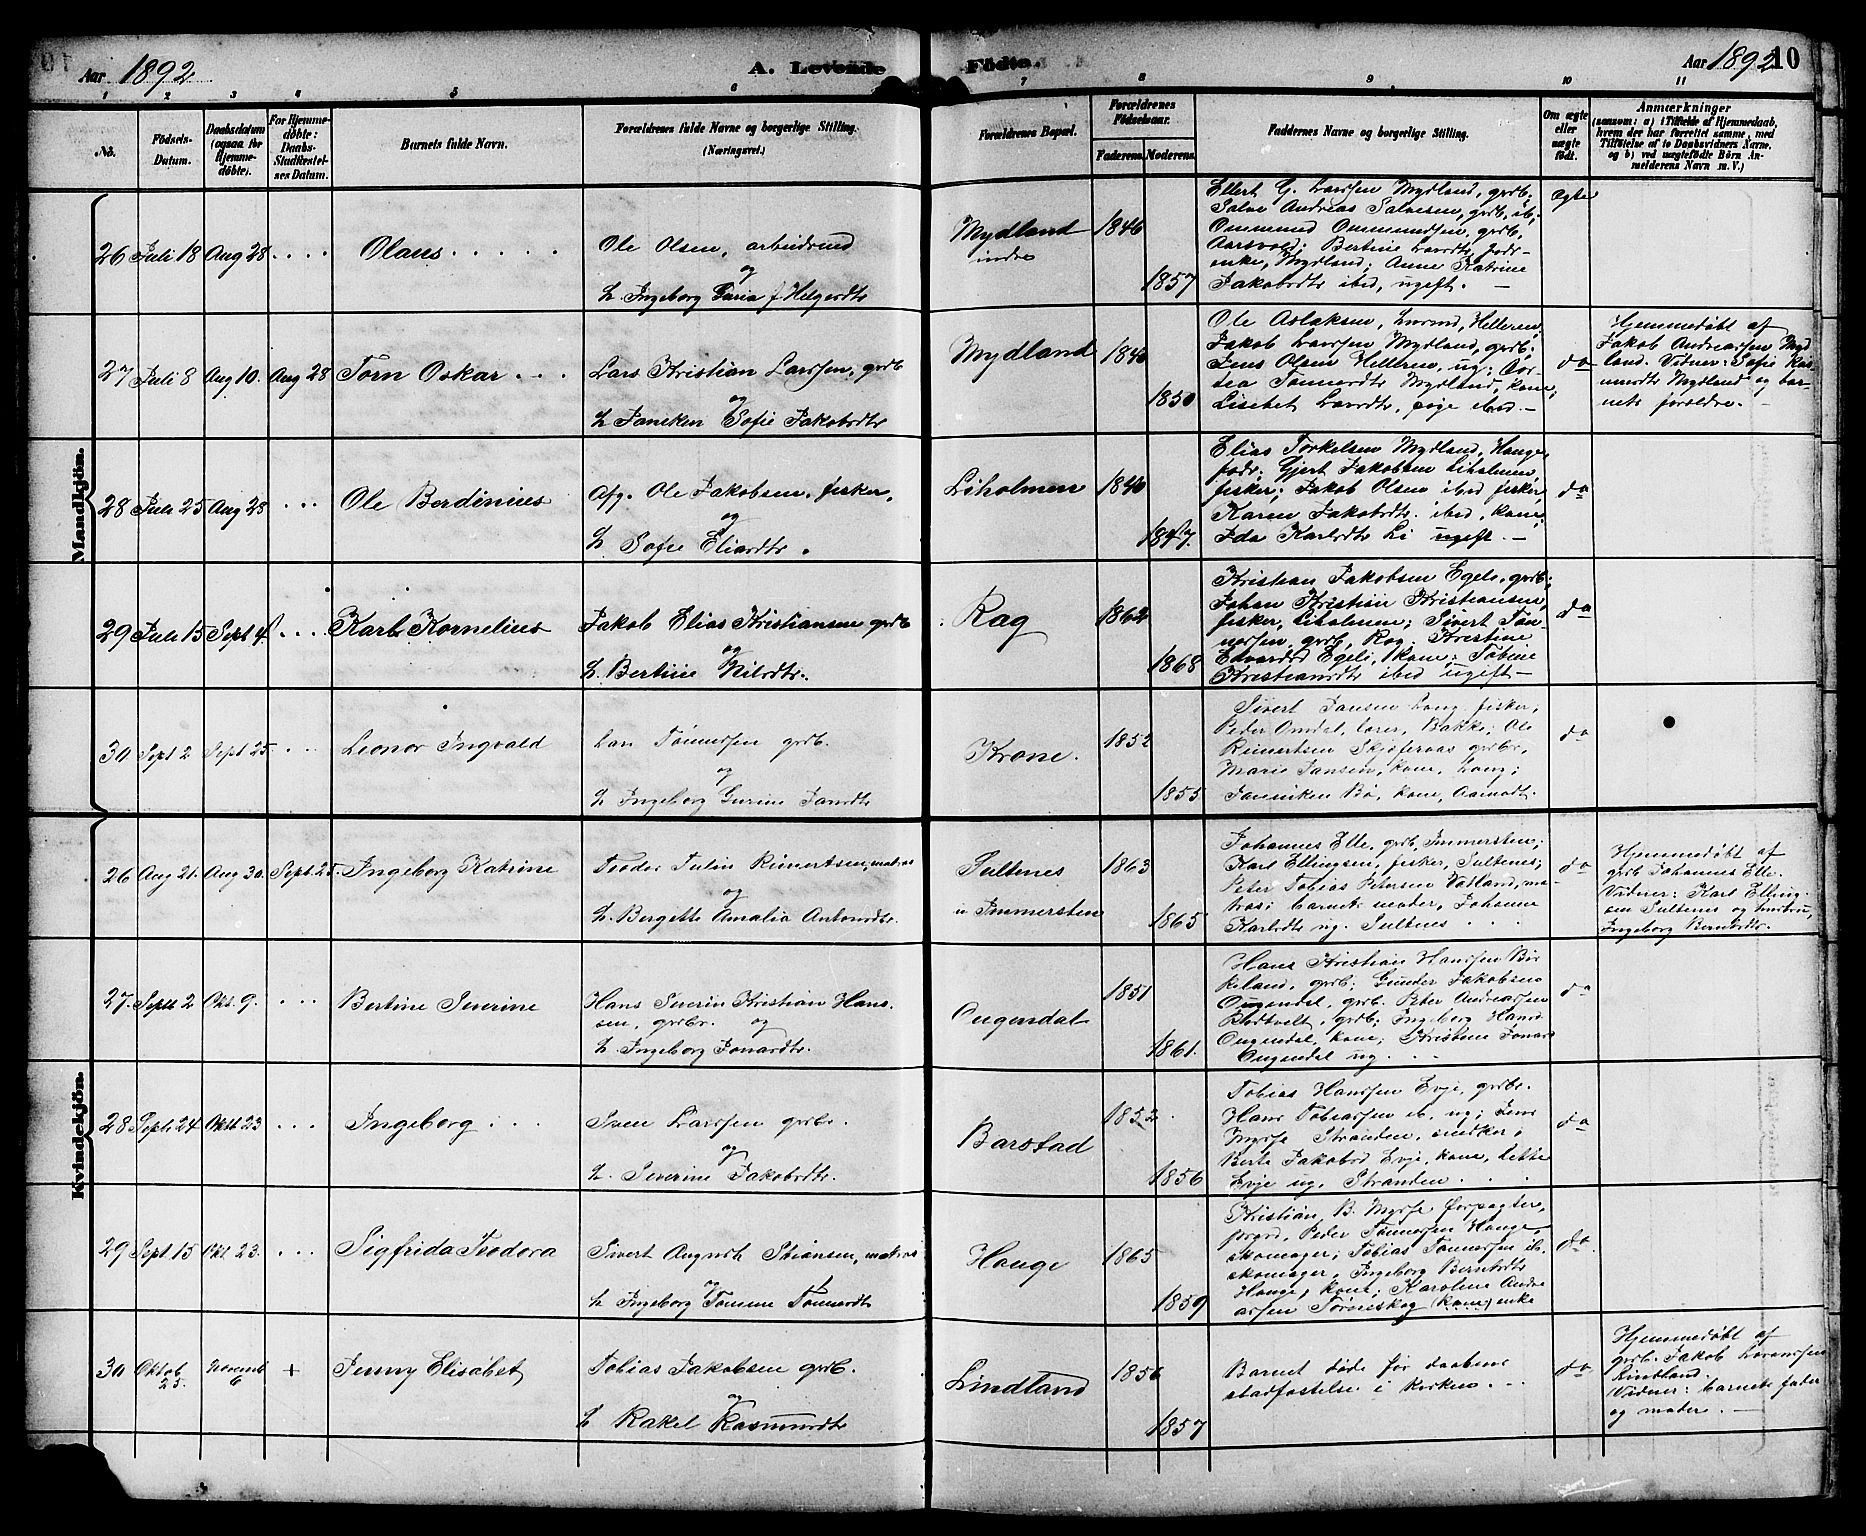 Aar 1892
A. Levende Fødte.
Aar 1892 10
1 2 3 4 5 6 7 8 9 10 11
No.
Fødsels-
Datum.
Daabsdatum
(ogsaa for
Hjemme-
døbte).
For Hjemme-
døbte:
Daabs-
Stadfæstel-
ses Datum.
Barnets fulde Navn.
Forældrenes fulde Navne og borgerlige Stilling.
(Næringsvei.)
Forældrenes Bopæl.
Forældrenes
Fødselsaar.
Faderens. Moderens.
Faddernes Navne og borgerlige Stilling.
Om ægte
eller
uægte
født.
Anmærkninger
(saasom: a) i Tilfælde af Hjemmedaab,
hvem der har forrettet samme, med
Tilføielse af to Daabsvidners Navne,
og b) ved uægtefødte Børn An-
melderens Navn m. V.)
Mandkjøn.
26 Juli 18 Aug 28 Olaus
Ole Olsen, arbeidsmd
og
h. Ingeborg Guria f Helgesdtr
Mydland
indre
1846
1857
Ellert G. Larssen Mydland, grdb,
Salve Andreas Salvesen, grdb, ib,
Ommund Ommundsen, grdb,
Aarsvold; Bertine Larsdtr, fodr-
enke, Mydland; Anne Katrine
Jakobsdtr ibid, ugift.
ægte
27 Juli 8 Aug 10. Aug 28 Torn Oskar
Lars Kristian Larssen, grdb
og
h Janeken Sofie Jakobsdtr
Mydland
1846
1850
Ole Aslaksen, Helleren,
Jakob Larssen Mydland, grdb;
Jens Olsen Helleren, ug;
Tønnesdtr Mydland, kone,
Lisebet Larsdtr, pige ibid.
do
Hjemmedøbt af
Jakob Andreassen Myd
land. Vidner: Sofie Ras
musdtr Mydland og bar-
nets forældre.
28 Juli 25 Aug 28 Ole Berdinius
Afg. Ole Jakobsen, fisker,
og
h Sofie Eliasdtr.
Liholmen
1846
1847.
Elias Torkelsen Mydland, Hauge,
fodr. Gjert Jakobsen Liholmen,
fisker; Jakob Olsen ibid fisker,
Karen Jakobsdtr. ibid, kone,
Ida Karlsdtr Li ugift.
do
29 Juli 15 Sept 4 Karl Kornelius
Jakob Elias Kristiansen grdb
og
h. Bertine Nilsdtr.
Rag
1862
1868
Kristian Jakobsen Egeli, grdb;
Johan Kristian Kristiansen,
fisker, Liholmen; Sivert Tøn-
nessen, grdb, Rag, Kristine
Edvardsd Egeli, kone; Tobine
Kristiansdtr ibid ugift
do
30 Sept 2 Sept 25 Leonor Ingvald
Lars Tønnessen grdb.
og
h Ingeborg Gurine Jansdtr
Krone.
1852
1855
Sivert Jansen Long fisker,
Peder Omdal, lærer, Bakke; Ole
Reinertsen Skjøferaas grdbr,
Marie Jansen, kone, Long;
Janniken Bø, kone, Aamodt.
do
Kvindekjøn.
26 Aug 21. Aug 30. Sept. 25. Ingeborg Katrine
Teodor Tulin Reinertsen, matros
og
h. Bergitte Amalia Antonsdtr.
Sultenes
i Immersten
1863
1865
Johannes Elle, grdb, Immersten;
Karl Ellingsen, fisker, Sultenes;
Peter Tobias Petersen Vatland, ma-
tros; barnets moder, Johanne
Karlsdtr ug. Sultnes
do
Hjemmedøbt af
grdb Johannes Elle.
Vidner: Karl Elling-
sen Sultenes og hustru,
Ingeborg Berntsdtr.
27. Sept 2 Okt. 9. Bertine Severine
Hans Severin Kristian Hans.
sen, grdbr. og
h. Ingeborg Jonasdtr.
Ougendal
1851
1861.
Hans Kristian Hanssen Bir
keland, grdb; Gunder Jakobsen
Ougendal, grdb. Peter Andreassen
Blodtvelt, grdb; Ingeborg Hansd
Ougendal, kone; Kristine Jonasd
Ougendal ug.
do
28 Sept. 24 Okt 23 Ingeborg
Sven Larssen grdbr.
og
h. Severine Jakobsdtr.
Barstad
1852
1856
Tobias Hanssen Evje, grdbr.
Hans Tobiassen ib, ug; Jens
Myrse Stranden, snedker,
Berte Jakobsd Evje, kone, Lette
Evje ug, Stranden.
do
29 Sept. 15 Okt 23. Sigfrida Teodora
Sivert August Stiansen, matros
og
h Ingeborg Tomine Tønnesdtr
Hauge
1865
1859
Kristian B. Myrse forpagter,
prgrd, Peder Tønnessen Hauge,
skomager; Tobias Tønnessen ib.
skomager, Ingeborg Berntsdtr
Hauge, kone; Karoline Andre
assen Torneskog (kone) enke
do.
30 Oktob
25. Novemb
6 + Jenny Elisabet
Tobias Jakobsen grdb.
og
h Rakel Rasmusdtr
Lindland
1856
1857
Barnet døde før daabens
stadfæstelse i kirken.
do
Hjemmedøbt af
grdb. Jakob Larenssen
Lindland.
Vidner: barnets fader
og moder.